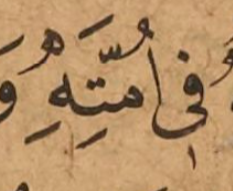 فِي أُمَّتِهِ وَ